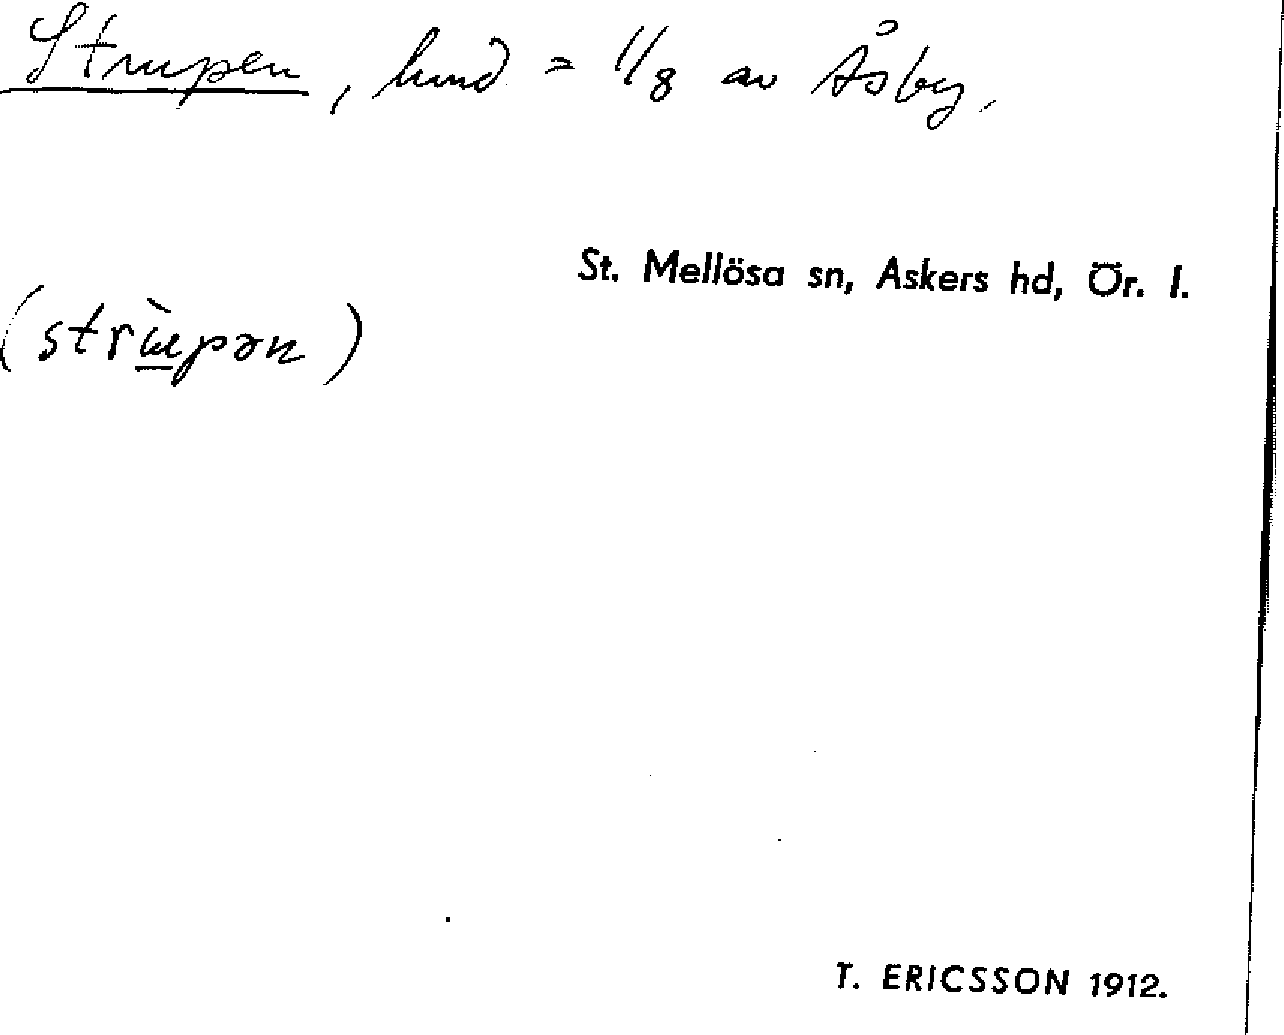 Strupen, lund = 1/8 av Åsby.
St. Mellösa sn, Askers hd, Ör. l.
(strùpən)
T. ERICSSON 1912.